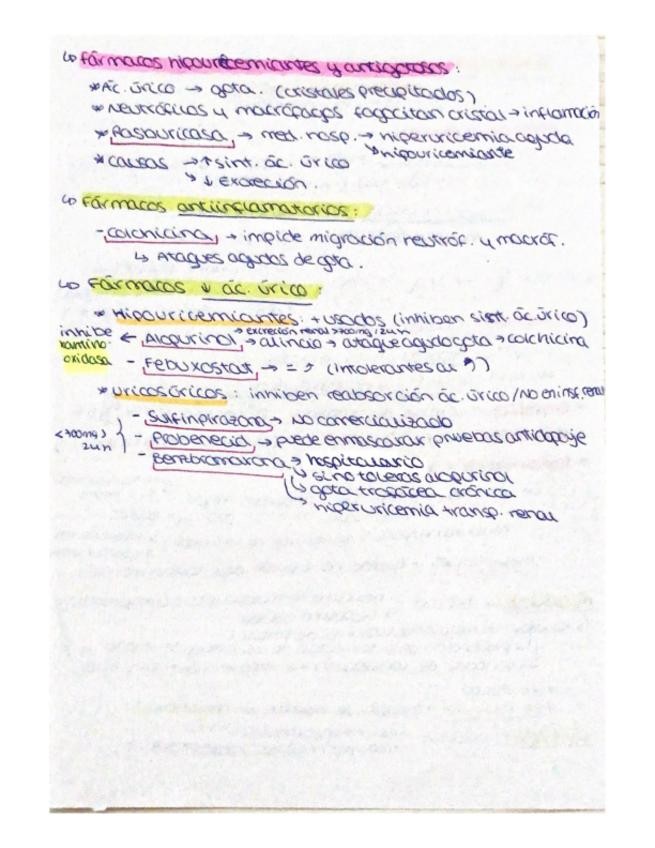 ↳ Fármacos hipouricemiantes y antigotosos:
* Ác. úrico → gota. (cristales precipitados)
* Neutrófilos y macrófagos fagocitan cristal → inflamación
* Rasburicasa → med. hosp. → hiperuricemia aguda
↘ hipouricemiante
* causas → ↑ sint. ác. úrico
↘ ↓ excreción.
↳ Fármacos antiinflamatorios:
- colchicina → impide migración neutróf. y macróf.
↳ Ataques agudos de gota.
↳ Fármacos ↓ ác. úrico:
* Hipouricemiantes: + usados (inhiben sint. ác. úrico)
→ excreción renal >700mg/24h
inhibe xantino oxidasa ← Alopurinol → al inicio → ataque agudo gota → colchicina
- Febuxostat → = (Intolerantes al ")
* uricosúricos: inhiben reabsorción ác. úrico / No en insf. renal
- Sulfinpirazona → No comercializado
<700mg/24h - Probenecid → puede enmascarar pruebas antidopaje
- Benzbromarona → hospitalario
↳ si no toleras alopurinol
↳ gota tropocea crónica
↳ hiperuricemia transp. renal